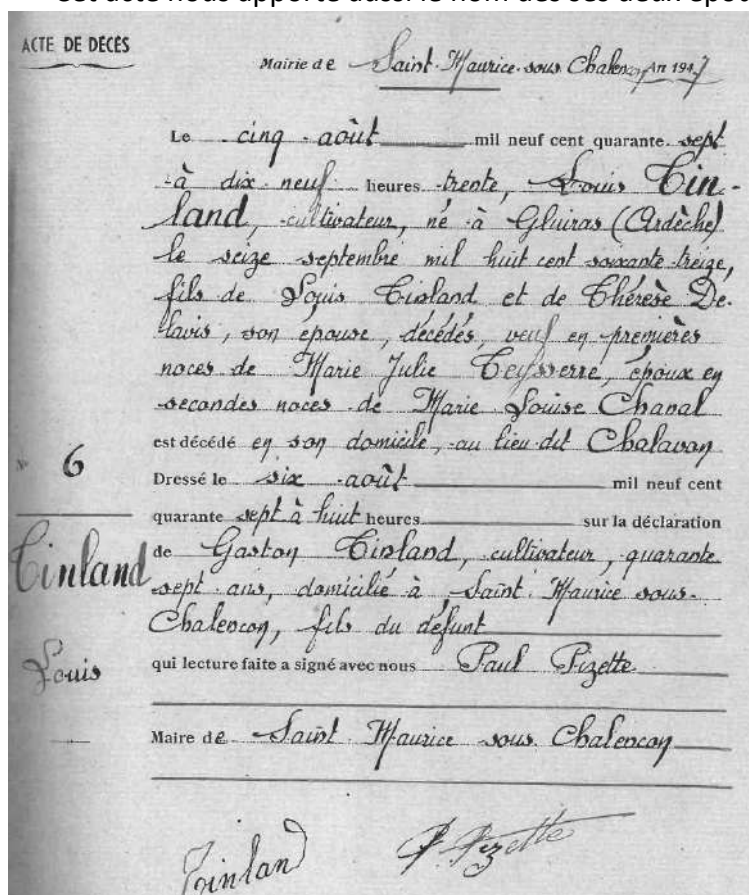 ACTE DE DÉCÈS
Mairie de Saint-Maurice-sous-Chalencon An 1947
Le cinq août mil neuf cent quarante sept
à dix neuf heures trente, Louis Tin-
land, cultivateur, né à Gluiras (Ardèche)
le seize septembre mil huit cent soixante treize,
fils de Louis Tinland et de Thérèse De-
lavis, son épouse, décédés, veuf en premières
noces de Marie Julie Teysserre, époux en
secondes noces de Marie Louise Chanal
est décédé en son domicile, au lieu dit Chalavon
Dressé le six août mil neuf cent
quarante sept à huit heures sur la déclaration
de Gaston Tinland, cultivateur, quarante
sept ans, domicilié à Saint Maurice sous-
Chalencon, fils du défunt
qui lecture faite a signé avec nous Paul Pizette
Maire de Saint Maurice sous Chalencon
N° 6
Tinland
Louis
Tinland
P. Pizette